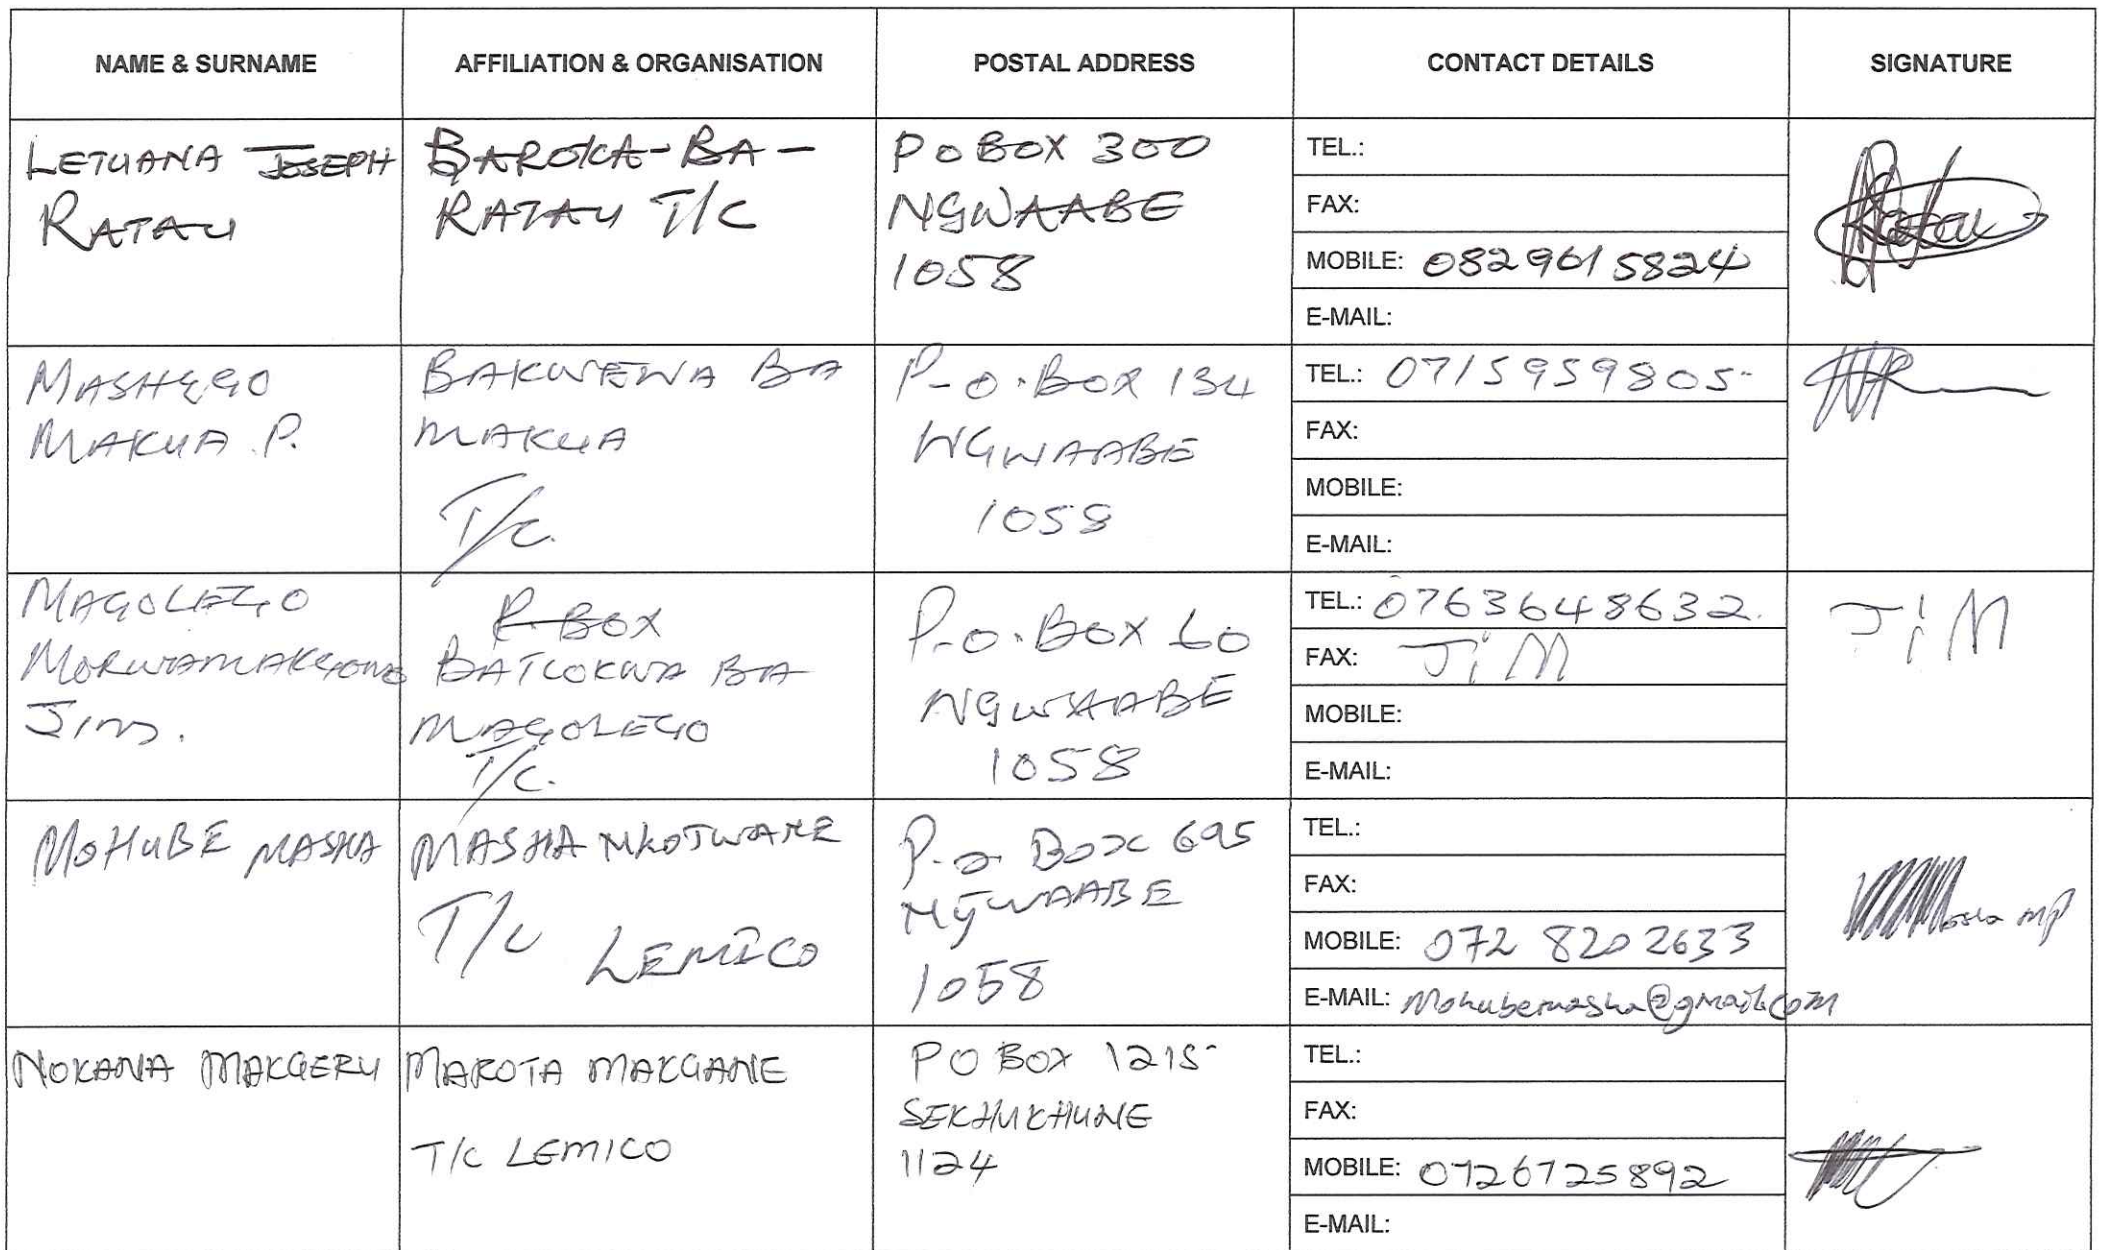 NAME & SURNAME AFFILIATION & ORGANISATION POSTAL ADDRESS CONTACT DETAILS SIGNATURE
LETUANA JOSEPH
RATAU
BAROKA-BA-
RATAU T/C
PO BOX 300
NGWAABE
1058
TEL.:
FAX:
MOBILE: 0829615824
E-MAIL:
MASHEGO
MAKUA P.
BAKWENA BA
MAKUA
T/C.
P.O. BOX 134
NGWAABE
1058
TEL.: 0715959805
FAX:
MOBILE:
E-MAIL:
MAGOLEGO
JIM.
P. BOX
BATLOKWA BA
MAGOLEGO
T/C.
P.O. BOX 60
NGWAABE
1058
TEL.: 0763648632.
FAX: JiM
MOBILE:
E-MAIL:
JiM
MOHUBE MASHA
MASHA NKOTWANE
T/C LEMICO
P.O BOX 695
NGWAABE
1058
TEL.:
FAX:
MOBILE: 072 820 2633
E-MAIL: Mohubemasha@gmail.com
NOKANA MAKGERU
MAROTA MAKGANE
T/C LEMICO
PO BOX 1215
SEKHUKHUNE
1124
TEL.:
FAX:
MOBILE: 0726725892
E-MAIL: